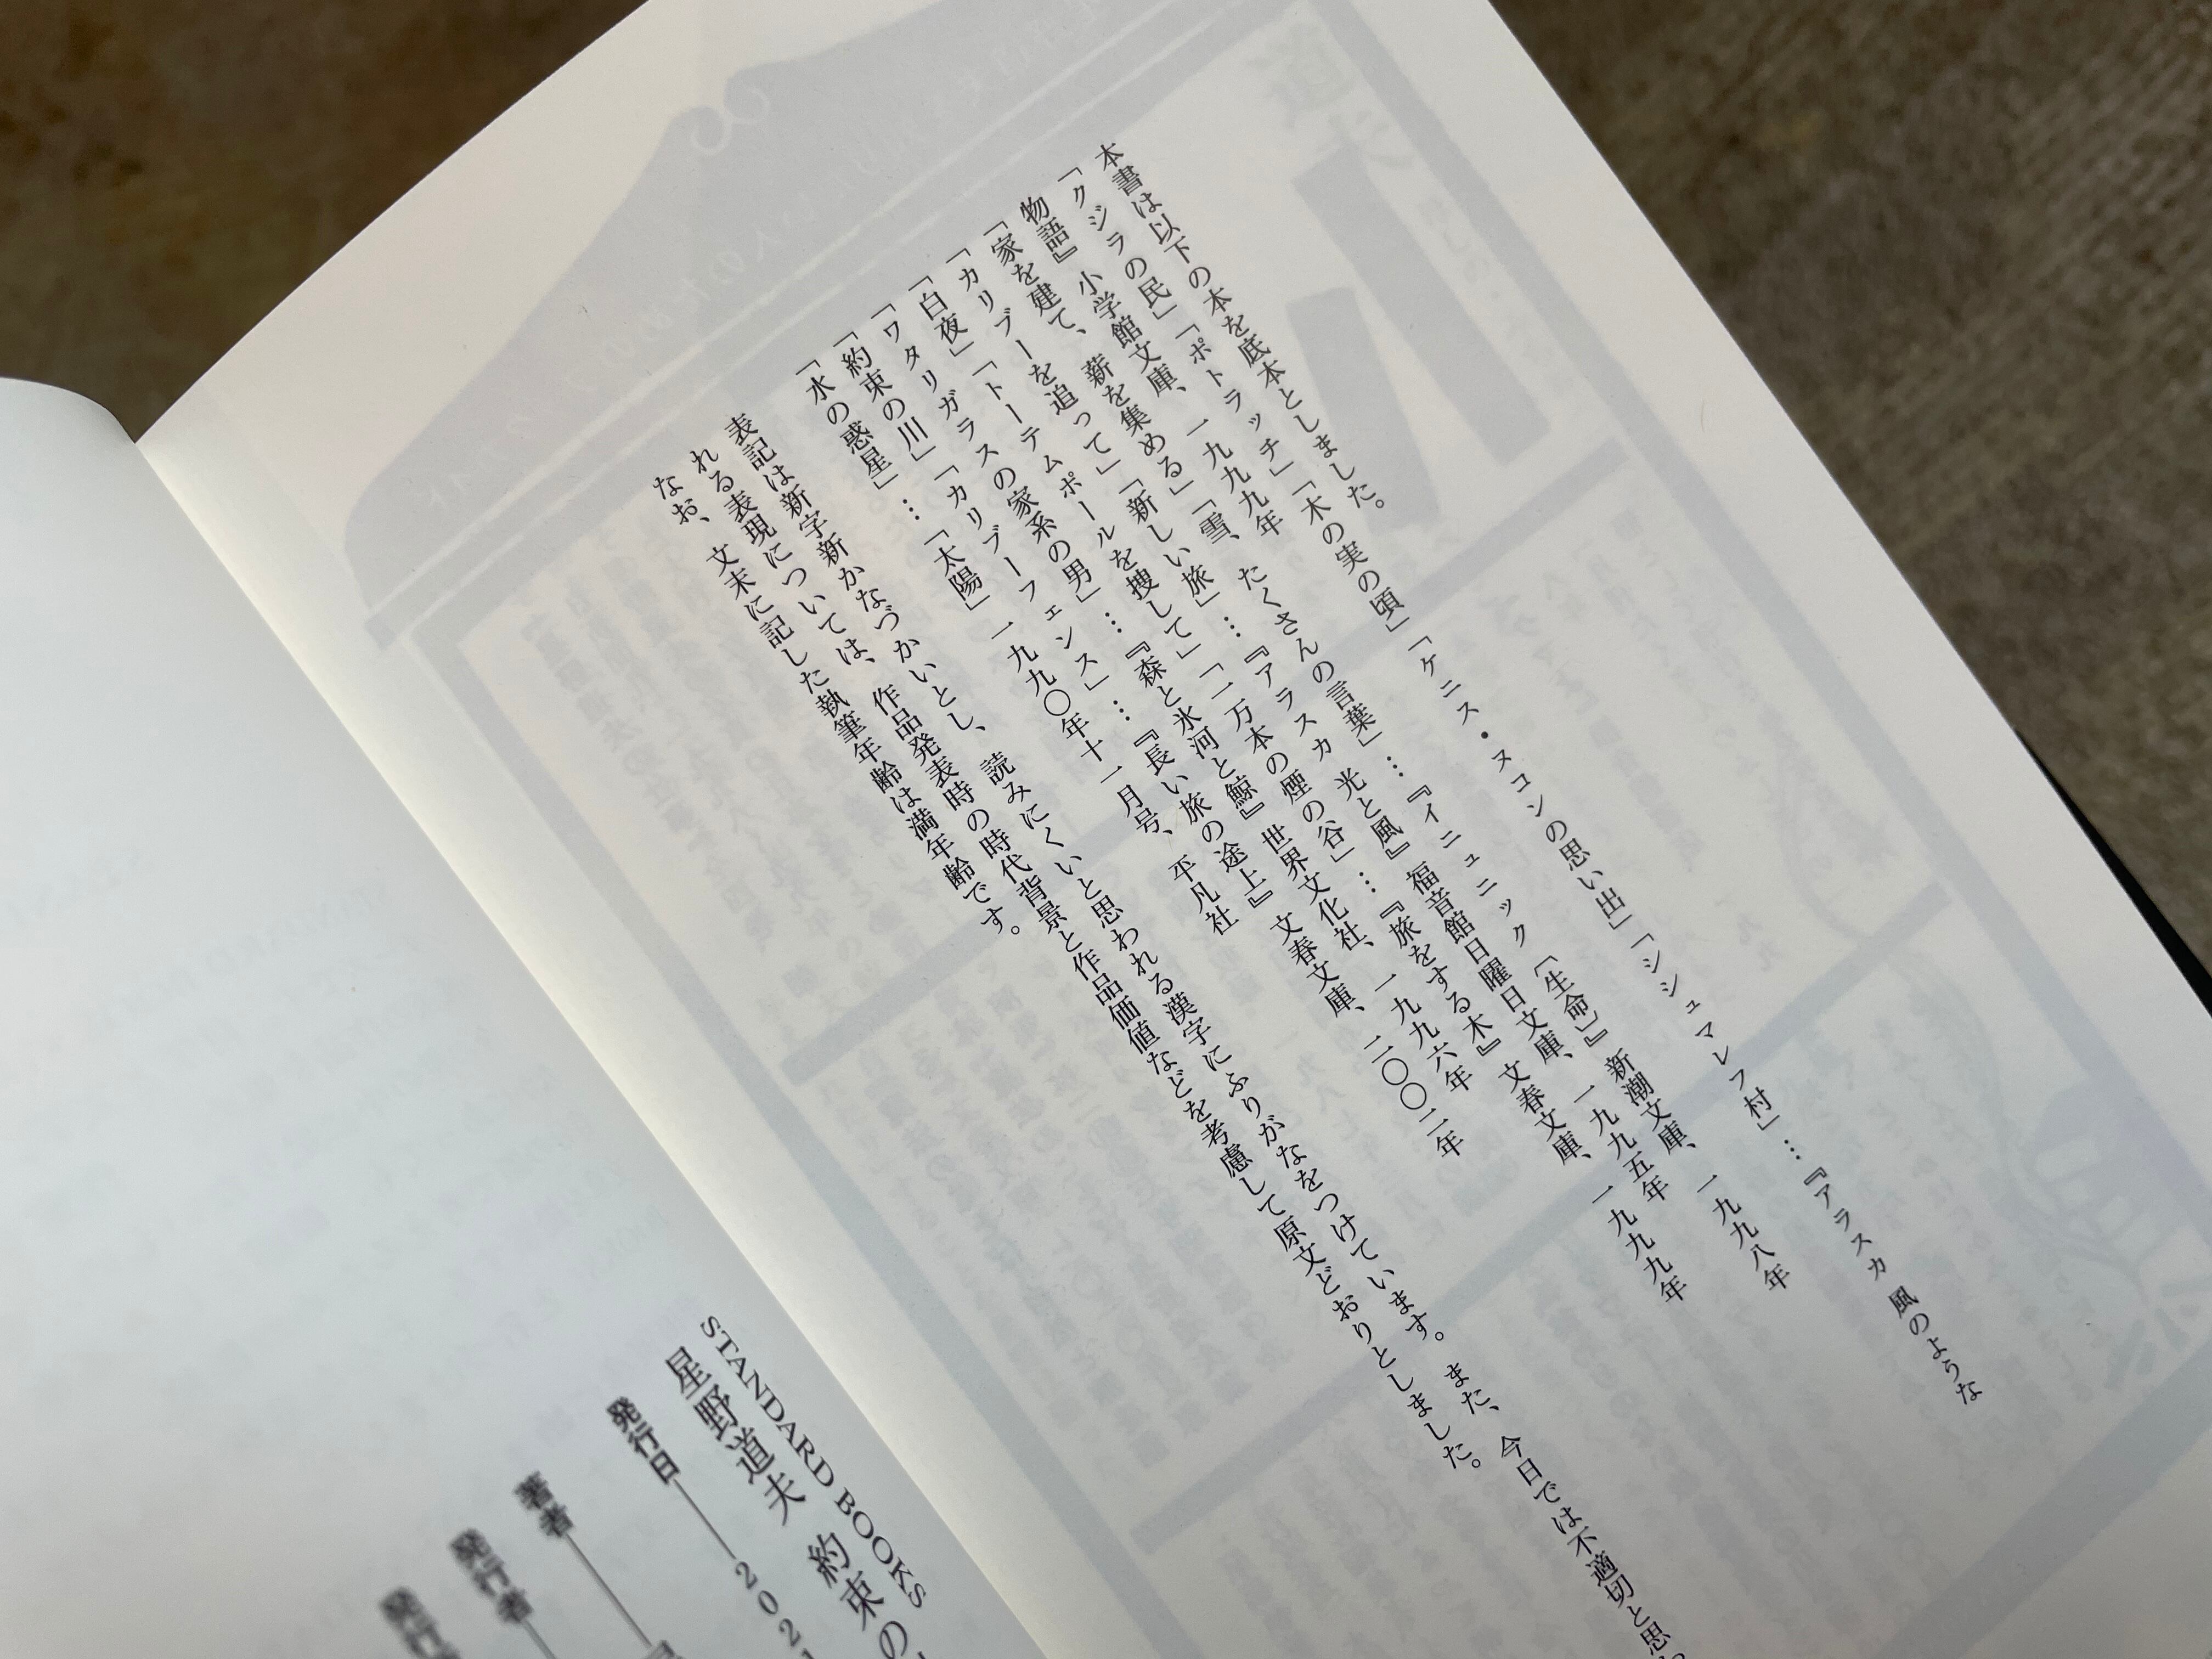 本書は以下の本を底本としました。
「クジラの民」「ポトラッチ」「木の実の頃」「ケニス・ヌコンの思い出」「シシュマレフ村」…『アラスカ 風のような
物語』 小学館文庫、一九九九年
「家を建て、薪を集める」「雪、たくさんの言葉」…『イニュニック〔生命〕』新潮文庫、一九九八年
「カリブーを追って」「新しい旅」…『アラスカ 光と風』福音館日曜日文庫、一九九五年
「白夜」「トーテムポールを捜して」「一万本の煙の谷」…『旅をする木』文春文庫、一九九九年
「ワタリガラスの家系の男」…『森と氷河と鯨』世界文化社、一九九六年
「約束の川」「カリブーフェンス」…『長い旅の途上』文春文庫、二〇〇二年
「水の惑星」…「太陽」一九九〇年十一月号、平凡社
表記は新字新かなづかいとし、読みにくいと思われる漢字にふりがなをつけています。また、今日では不適切と思わ
れる表現については、作品発表時の時代背景と作品価値などを考慮して原文どおりとしました。
なお、文末に記した執筆年齢は満年齢です。
STANDARD BOOKS
星野道夫 約束の
発行日 2021
著者
発行者
発行